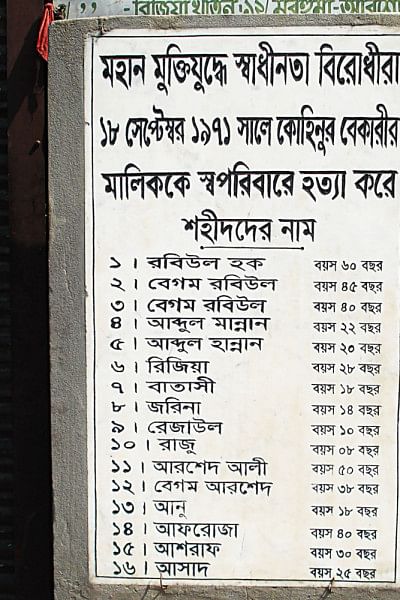 " - রিজিয়া খাতুন
মহান মুক্তিযুদ্ধে স্বাধীনতা বিরোধীরা
১৮ সেপ্টেম্বর ১৯৭১ সালে কোহিনুর বেকারীর
মালিককে স্বপরিবারে হত্যা করে
শহীদদের নাম
১ । রবিউল হক বয়স ৬০ বছর
২ । বেগম রবিউল বয়স ৪৫ বছর
৩ । বেগম রবিউল বয়স ৪০ বছর
৪ । আব্দুল মান্নান বয়স ২২ বছর
৫ । আব্দুল হান্নান বয়স ২০ বছর
৬ । রিজিয়া বয়স ২৮ বছর
৭ । বাতাসী বয়স ১৮ বছর
৮ । জরিনা বয়স ১৪ বছর
৯ । রেজাউল বয়স ১০ বছর
১০ । রাজু বয়স ০৮ বছর
১১ । আরশেদ আলী বয়স ৫০ বছর
১২ । বেগম আরশেদ বয়স ৩৮ বছর
১৩ । আনু বয়স ১৮ বছর
১৪ । আফরোজা বয়স ৪০ বছর
১৫ । আশরাফ বয়স ৩০ বছর
১৬ । আসাদ বয়স ২৫ বছর